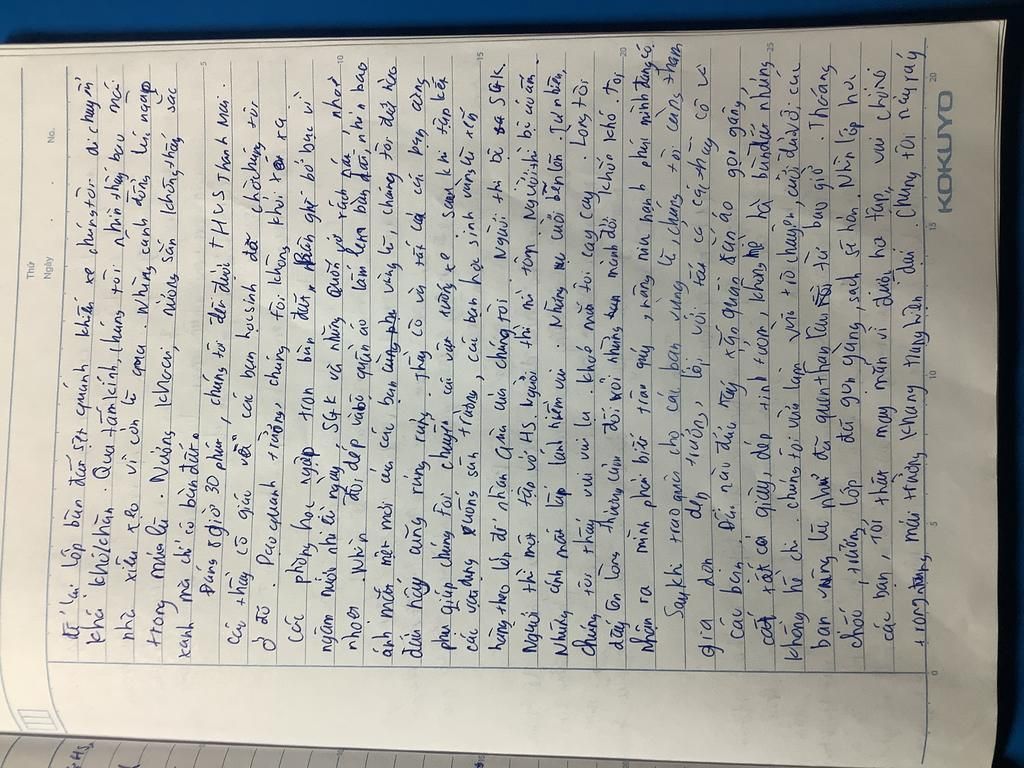 Thứ
Ngày
No.
để lại lớp bùn đất sệt quánh khiến xe chúng tôi di chuyển
khá khó khăn. Qua tấm kính, chúng tôi nhìn thấy bao mái
nhà xiêu xẹo vì cơn lũ qua. Những cánh đồng lúa ngập
trong nước lũ. Nương khoai, nương sắn không thấy sắc
xanh mà chỉ có bùn đất.
Đúng 8 giờ 30 phút, chúng tôi đến được THCS Thanh Mai.
Các thầy cô giáo với các bạn học sinh đã chờ chúng tôi
ở đó. Dạo quanh trường, chúng tôi không khỏi xót xa
các phòng học ngập tràn bùn đất, bàn ghế bỏ bạc vì
ngâm nước nhiều ngày, SGK và những quyển vở rách nát, nhoè
nhoẹt. Nhìn đôi dép và bộ quần áo lấm lem bùn đất, nhìn bao
ánh mắt mệt mỏi của các bạn vùng lũ, chúng tôi đứa nào
đứa nấy cũng rưng rưng. Thầy cô và tất cả các bạn cùng
phụ giúp chúng tôi chuyển cả vật xuống xe. Sau khi tập kết
các vật dụng xuống sân trường, các bạn học sinh vùng lũ xếp
hàng theo lớp để nhận quà của chúng tôi. Người thì bộ SGK.
Người thì một tập vở HS. Người thì mì tôm. Người thì bộ quần áo.
Những ánh mắt lấp lánh niềm vui. Những nụ cười bẽn lẽn. Tự nhiên,
chúng tôi thấy vui vui lạ. Khoé mắt tôi cay cay. Lòng tôi
đầy ắp lòng thương cảm đối với những mảnh đời khốn khó. Tôi
nhận ra mình phải biết trân quý, nâng niu hạnh phúc mình đang có.
Sau khi trao quà cho các bạn vùng lũ, chúng tôi cùng tham
gia dọn dẹp trường, lớp với tất cả các thầy cô và
các bạn. Đâu nào đâu tay xắn quần xắn áo gọn gàng,
cất tất cả giày, dép tinh tươm, không nề hà bùn đất những
không hề chi. Chúng tôi vừa làm vừa trò chuyện, cười đùa với các
bạn vùng lũ như đã quen thân lâu tự bao giờ. Thoáng
chốc, trường lớp đã gọn gàng, sạch sẽ hơn. Nhìn lớp học
các bạn, tôi thấy may mắn vì được học tập, vui chơi
trong ngôi trường khang trang hiện đại. Chúng tôi nay này
5
10
15
20
25
0
5
10
15
20
KOKUYO